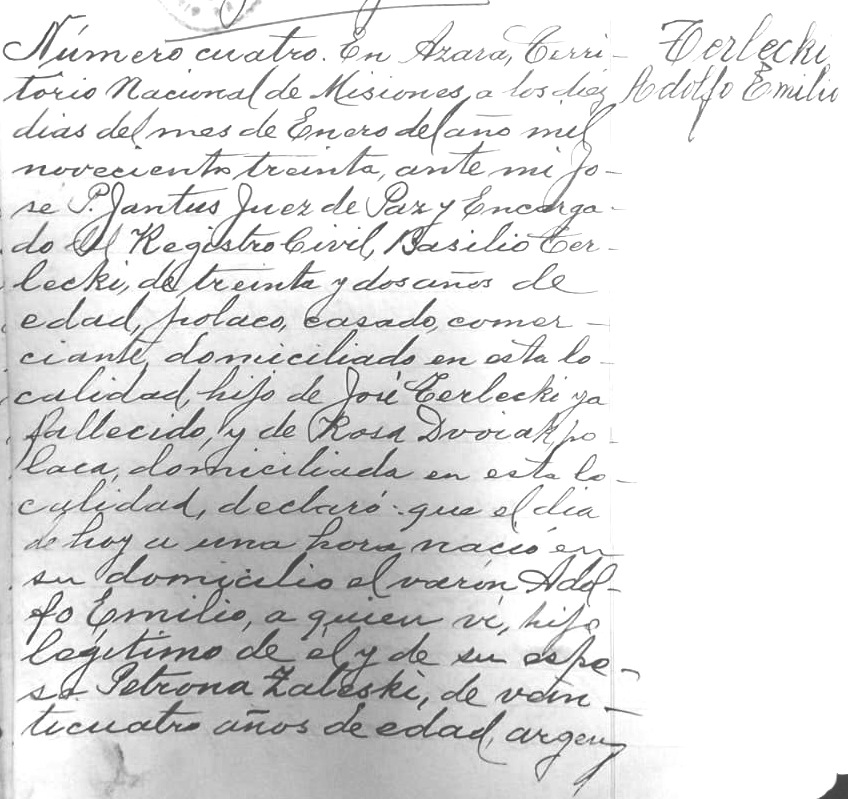 Número cuatro. En Azara, Terri-
torio Nacional de Misiones, a los diez
dias del mes de Enero del año mil
novecientos treinta, ante mi Jo-
sé P. Jantus Juez de Paz y Encarga-
do del Registro Civil, Basilio Ter-
lecki, de treinta y dos años de
edad, polaco, casado, comer-
ciante, domiciliado en esta lo-
calidad, hijo de José Terlecki ya
fallecido, y de Rosa Dvoiak, po-
laca, domiciliada en esta lo-
calidad, declaró que el dia
de hoy a una hora nació en
su domicilio el varón Adol-
fo Emilio, a quien ví, hijo
legítimo de él y de su espo-
sa Petrona Zaleski, de vein-
ticuatro años de edad, argen
Terlecki
Adolfo Emilio